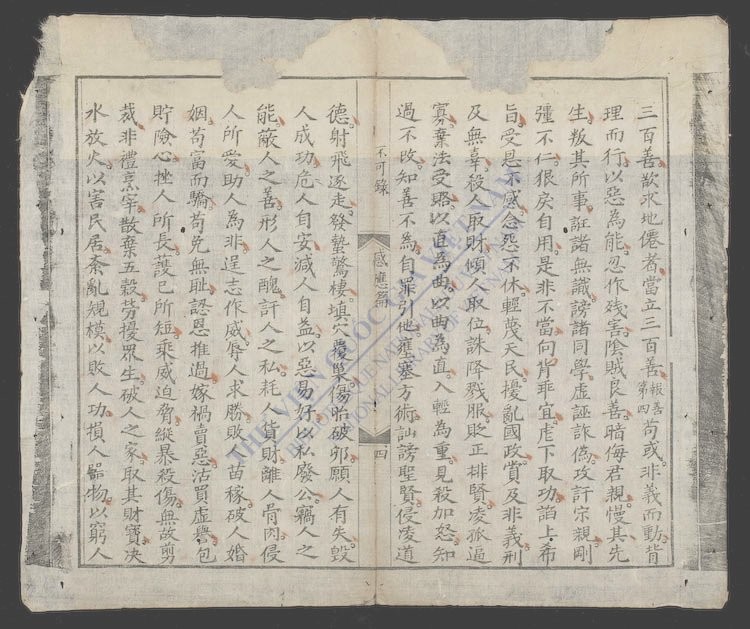 三百善欲求地僊者當立三百善報善第四苟或非義而動背
理而行以惡為能忍作殘害陰賊良善暗侮君親慢其先
生叛其所事誑諸無識謗諸同學虛誣詐偽攻訐宗親剛
彊不仁狠戾自用是非不當向背乖宜虐下取功諂上希
旨受恩不感念怨不休輕蔑天民擾亂國政賞及非義刑
及無辜殺人取財傾人取位誅降戮服貶正排賢凌孤逼
寡棄法受賂以直為曲以曲為直入輕為重見殺加怒知
過不改知善不為自罪引他壅塞方術訕謗聖賢侵凌道
不可錄 感應篇 四
德射飛逐走發蟄驚棲填穴覆巢傷胎破卵願人有失毀
人成功危人自安減人自益以惡易好以私廢公竊人之
能蔽人之善形人之醜訐人之私耗人貨財離人骨肉侵
人所愛助人為非逞志作威辱人求勝敗苗稼破人婚
姻苟富而驕苟免無恥認恩推過嫁禍賣惡沽買虛譽包
貯險心挫人所長護己所短乘威迫脅縱暴殺傷無故剪
裁非禮烹宰散棄五穀勞擾眾生破人之家取其財寶决
水放火以害民居紊亂規模以敗人功損人器物以窮人
THƯ VIỆN QUỐC GIA VIỆT NAM
BIBLIOTHÈQUE NATIONALE DU VIETNAM
NATIONAL LIBRARY OF VIETNAM